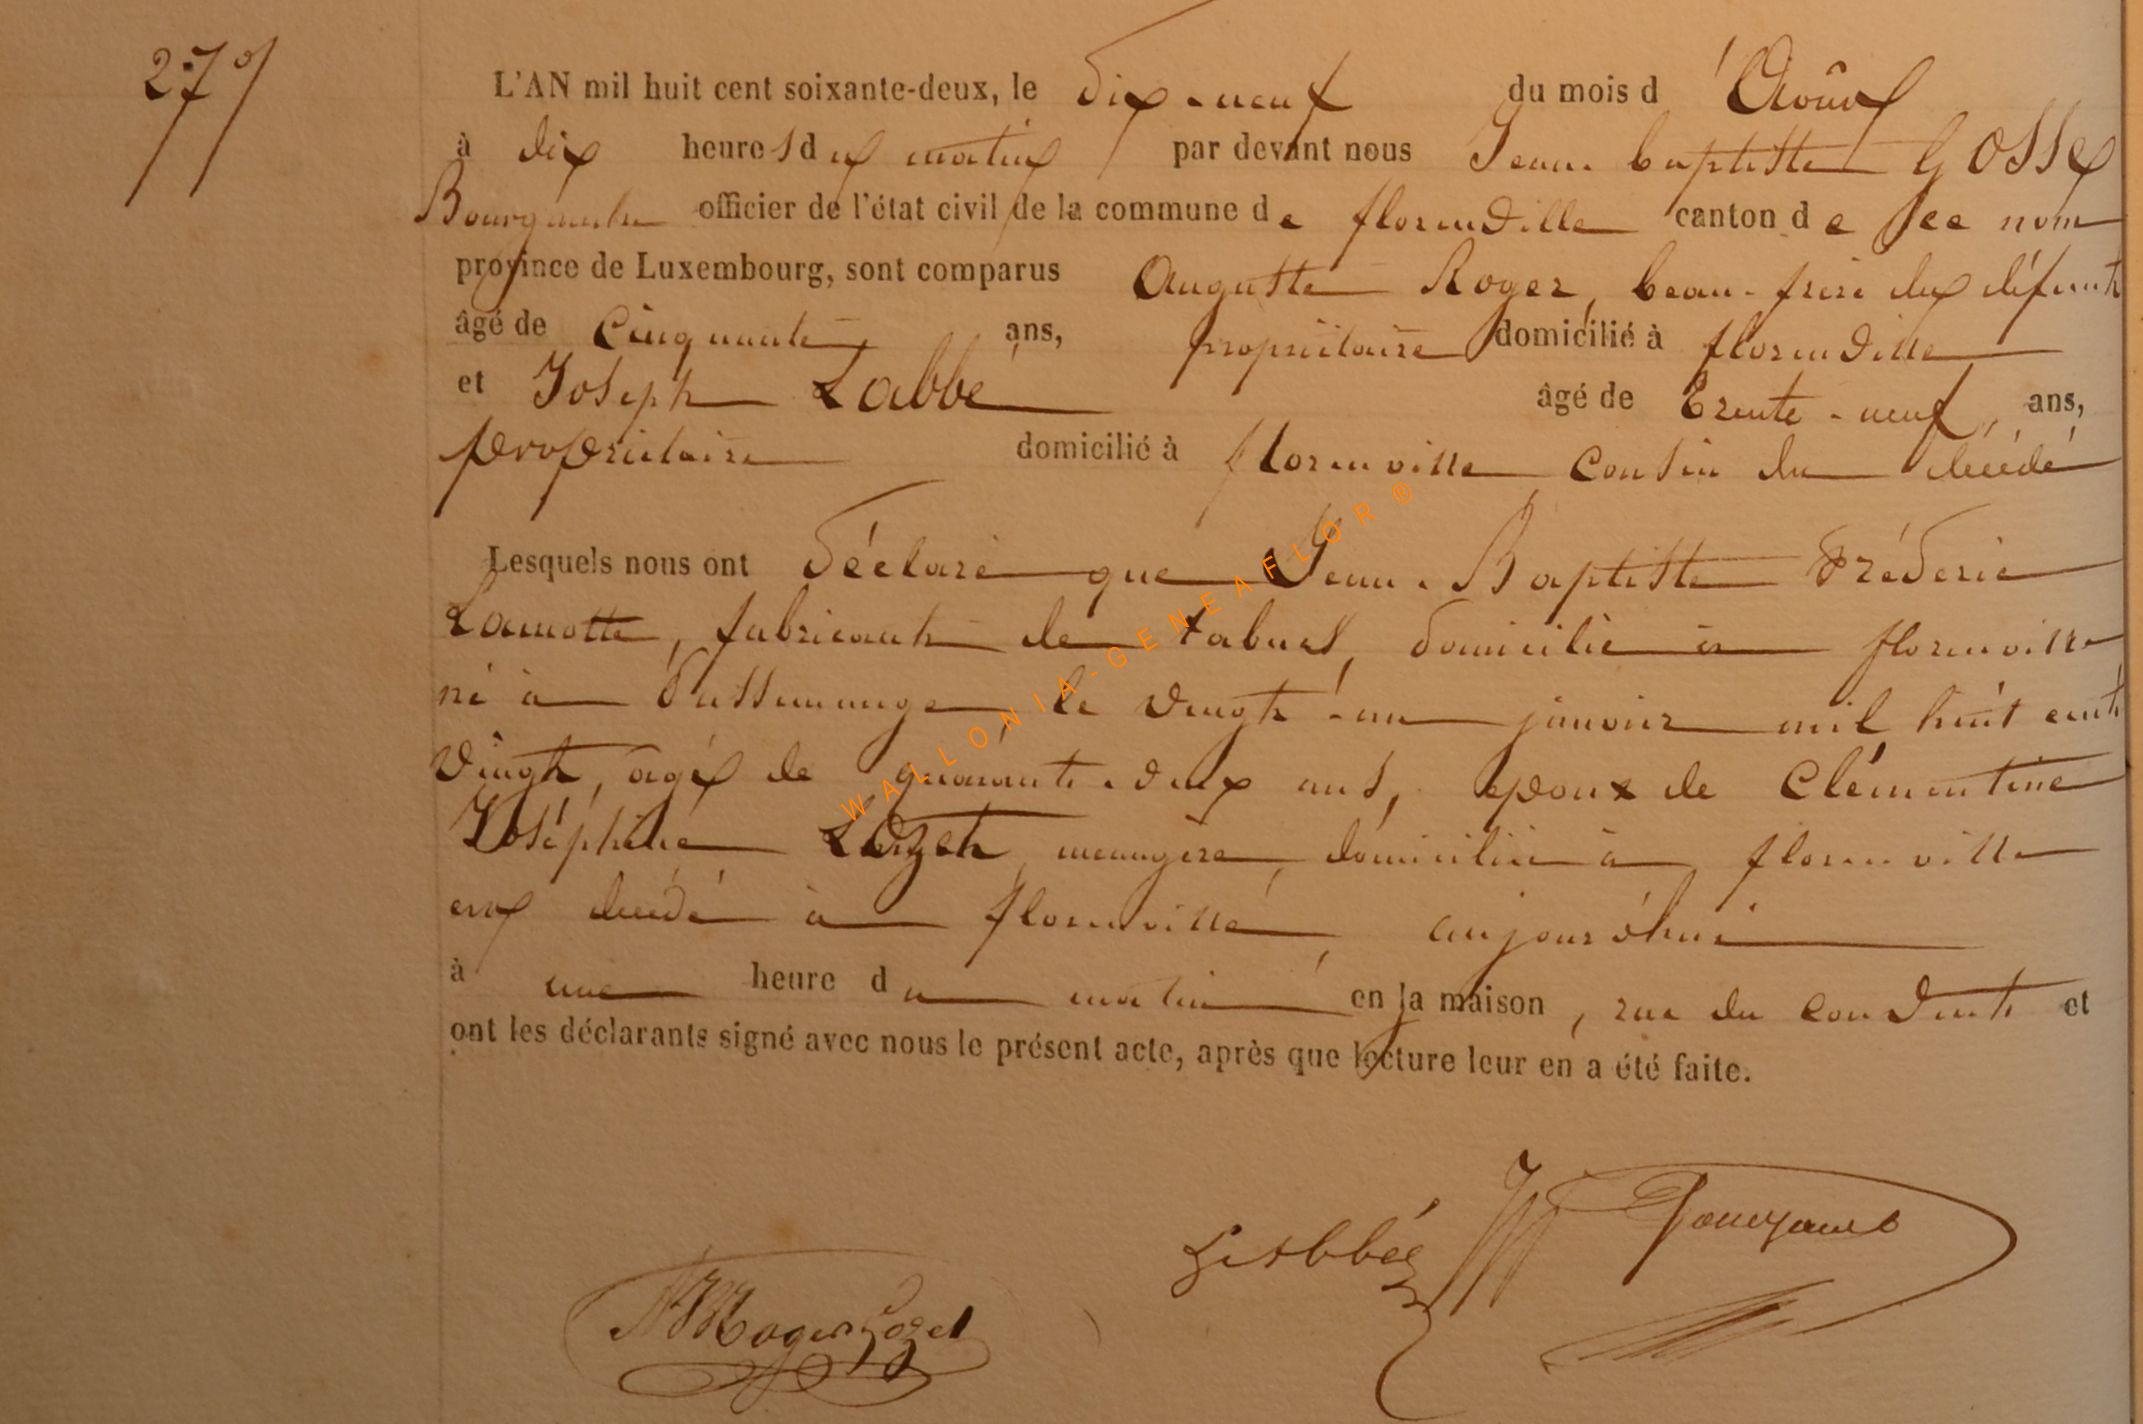 27°/
L'AN mil huit cent soixante-deux, le dix-neuf du mois d'Août
à dix heures du matin par devant nous Jean-baptiste GOSSE
Bourgmestre officier de l'état civil de la commune de florenville canton de ce nom
province de Luxembourg, sont comparus Auguste Roger, beau-frère du défunt
âgé de cinquante ans, propriétaire domicilié à florenville
et Joseph Labbé âgé de trente-neuf, ans,
propriétaire domicilié à florenville cousin du décédé
Lesquels nous ont déclaré que Jean-Baptiste Fréderic
Lamotte, fabricant de tabacs, domicilié à florenville
né à Pussemange le vingt-un janvier mil huit cent
vingt, agé de quarante-deux ans, époux de Clémentine
Joséphine Lozet, menagère, domiciliée à florenville
est décédé à florenville, aujourd'hui
à une heure du matin en la maison, rue du couvent et
ont les déclarants signé avec nous le présent acte, après que lecture leur en a été faite.
Labbé
Roger Lozet
WALLONIA-GENEAFLOR ®